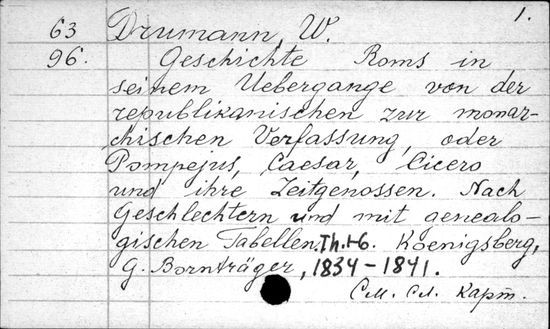 1.
63 Drumann, W.
96. Geschichte Roms in
seinem Uebergange von der
republikanischen zur monar-
chischen Verfassung, oder
Pompejus, Caesar, Cicero
und ihre Zeitgenossen. Nach
Geschlechtern und mit genealo-
gischen Tabellen. Th. 1-6. Koenigsberg,
G. Bornträger, 1834-1841.
См. сл. карт.